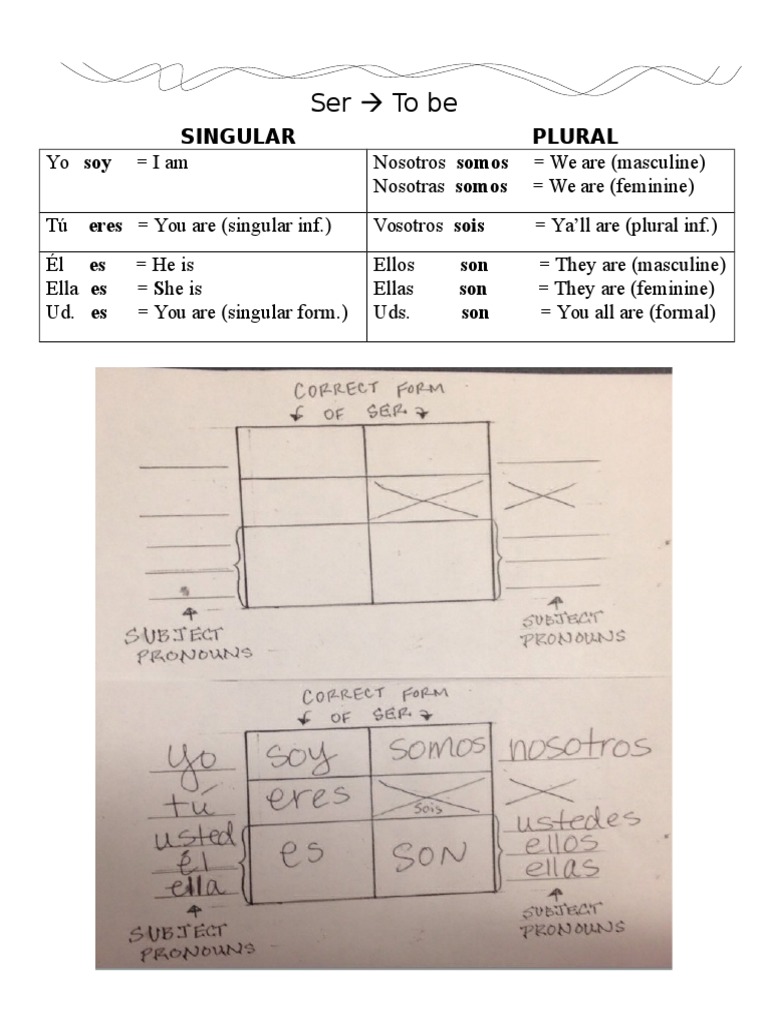 Ser → To be
SINGULAR PLURAL
Yo soy = I am Nosotros somos = We are (masculine)
Nosotras somos = We are (feminine)
Tú eres = You are (singular inf.) Vosotros sois = Ya’ll are (plural inf.)
Él es = He is Ellos son = They are (masculine)
Ella es = She is Ellas son = They are (feminine)
Ud. es = You are (singular form.) Uds. son = You all are (formal)
CORRECT FORM
OF SER
SUBJECT
PRONOUNS
SUBJECT
PRONOUNS
CORRECT FORM
OF SER
yo soy somos nosotros
tú eres sois
usted es son ustedes
él ellos
ella ellas
SUBJECT
PRONOUNS
SUBJECT
PRONOUNS